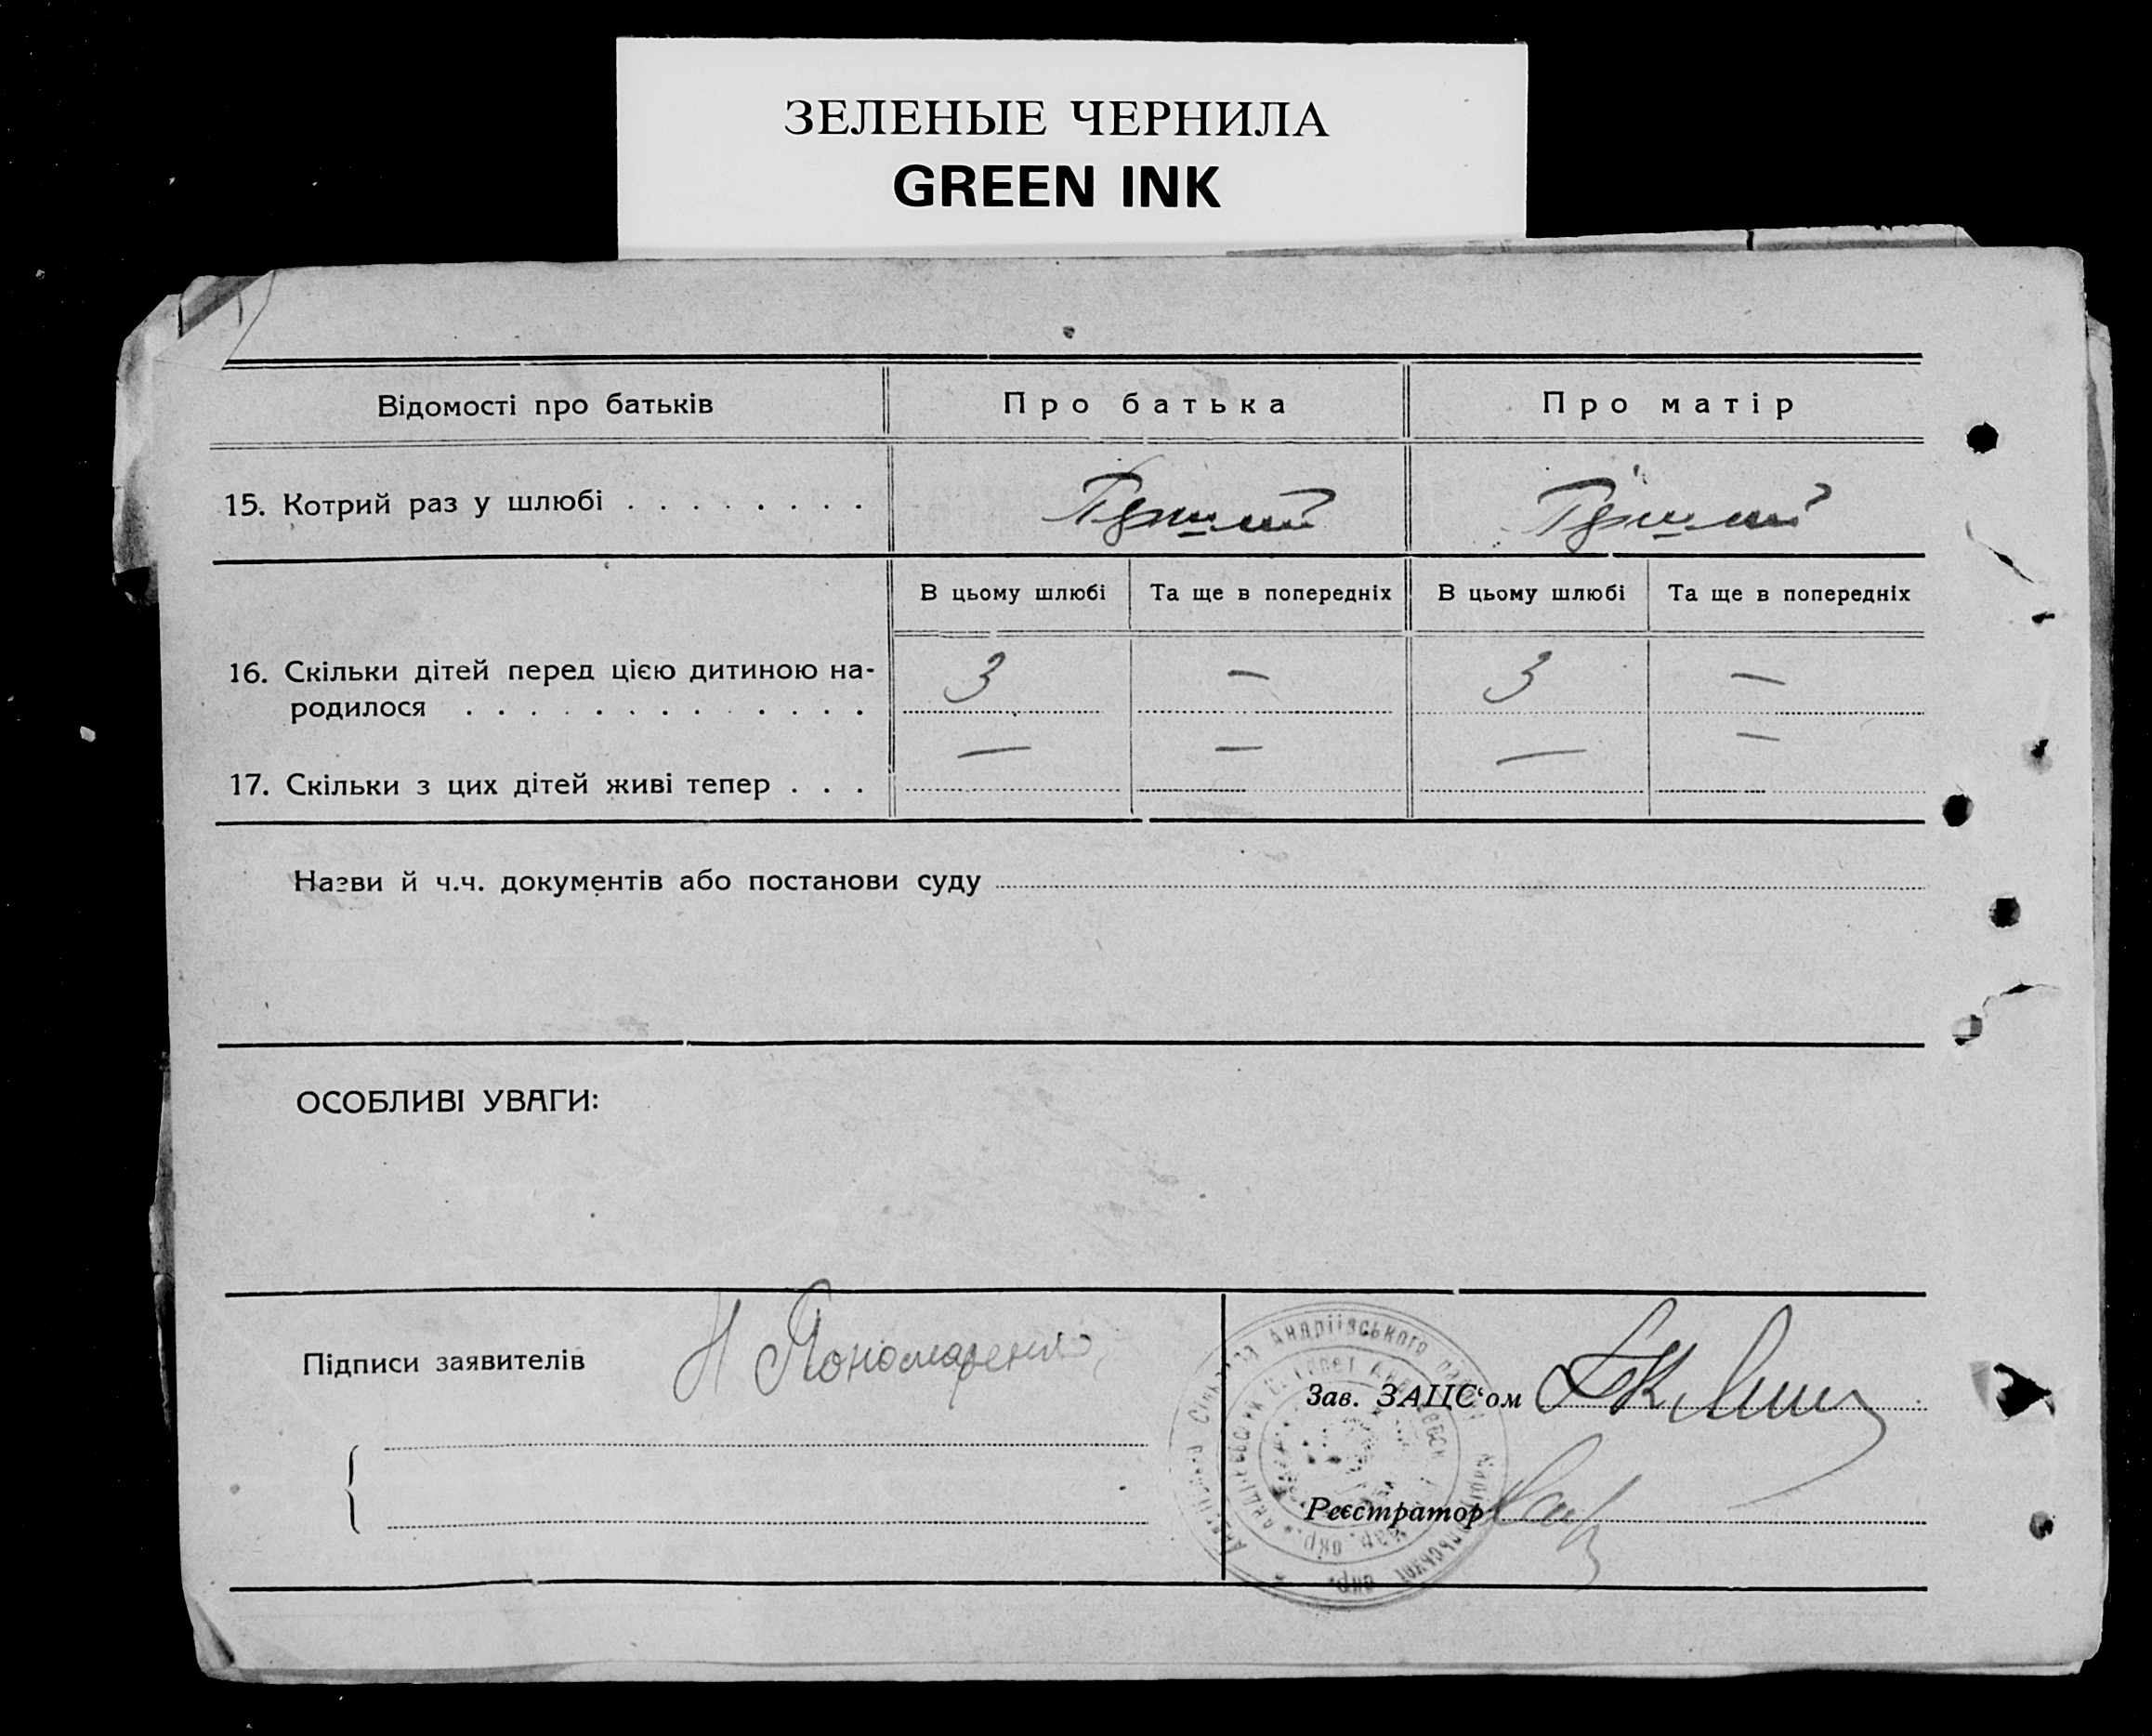 ЗЕЛЕНЫЕ ЧЕРНИЛА
GREEN INK
Відомості про батьків Про батька Про матір
15. Котрий раз у шлюбі . . . . . . . .
В цьому шлюбі Та ще в попередніх В цьому шлюбі Та ще в попередніх
16. Скільки дітей перед цією дитиною на- 3 — 3 —
родилося . . . . . . . . . . . . .
17. Скільки з цих дітей живі тепер . . . — — — —
Назви й ч.ч. документів або постанови суду
ОСОБЛИВІ УВАГИ:
Підписи заявителів Н Пономаренко
Зав. ЗАЦС‘ом
Реєстратор
Андріївського
окр.